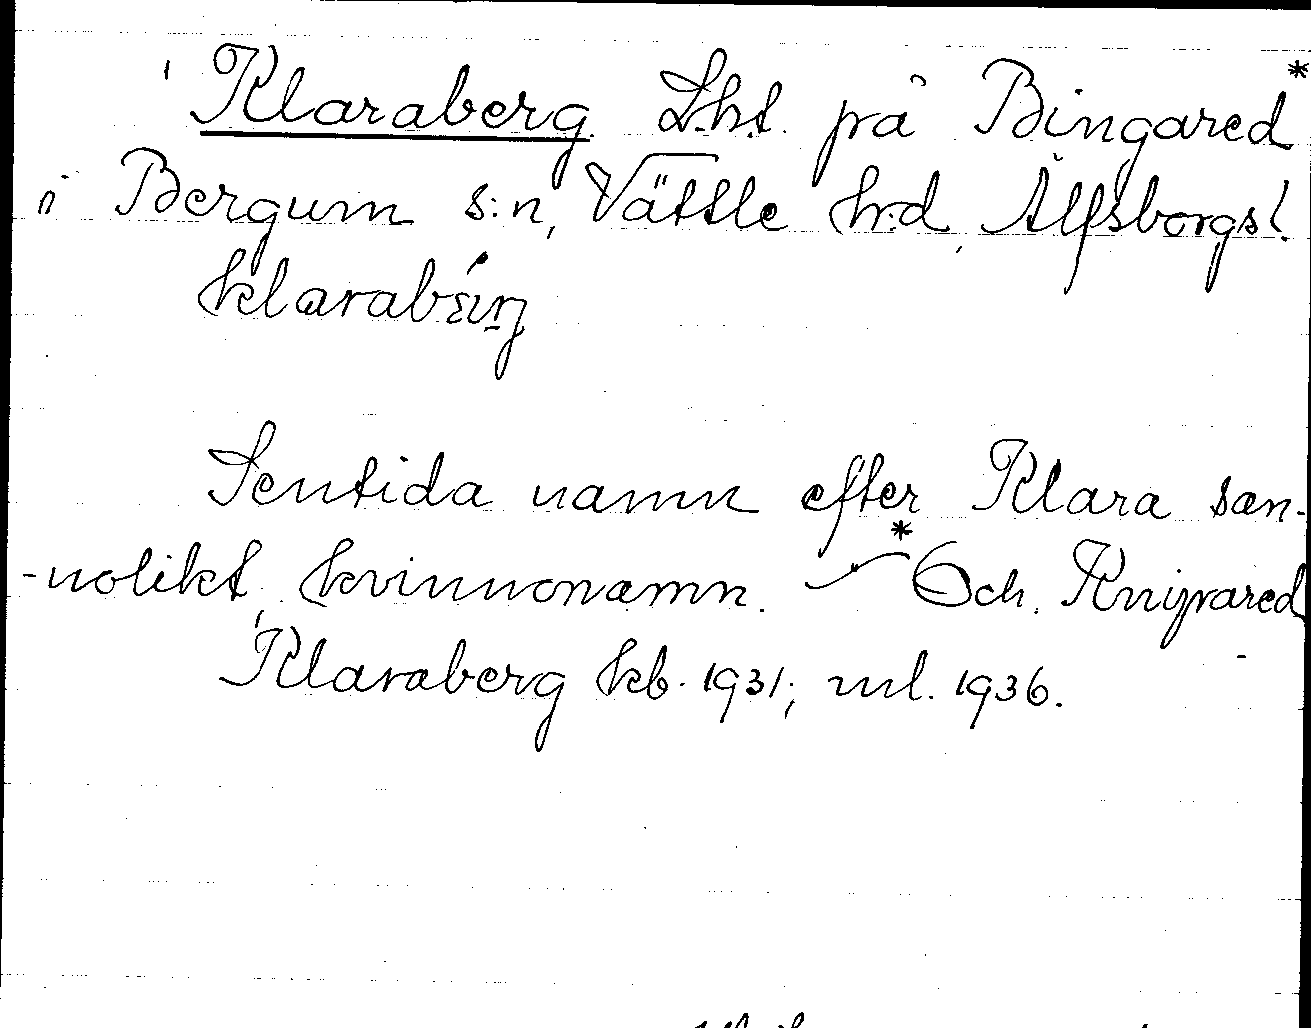 Klaraberg Lht. på Bingared*
i Bergum s:n, Vättle hrd, Älfsborgs l.
klarabæ̀rj
Sentida namn efter Klara san-
-nolikt, kvinnonamn. * Och. Knipared
Klaraberg kb. 1931; ml. 1936.